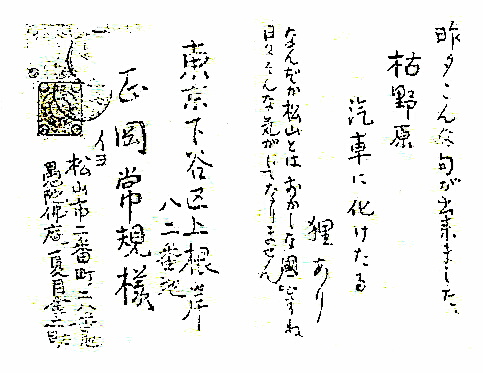 昨夕こんな句が出来ました。
枯野原
汽車に化けたる
狸あり
なんだか松山とはおかしな国ですね
日々そんな気がしてなりません
東京下谷区上根岸
八二番地
正岡常規様
イヨ
松山市二番町二八番地
愚陀佛庵 夏目金之助